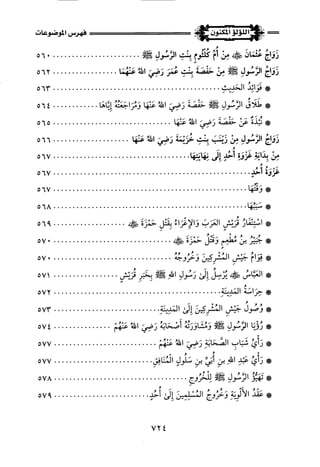 اللؤلؤ المكنون
فهرس الموضوعات
زَوَاجُ عُثْمَانَ ﷺ مِنْ أُمِّ كُلْثُومٍ بِنْتِ الرَّسُولِ ﷺ ........ ٥٦٠
زَوَاجُ الرَّسُولِ ﷺ مِنْ حَفْصَةَ بِنْتِ عُمَرَ رَضِيَ اللهُ عَنْهُمَا ........ ٥٦٢
* فَوَائِدُ الحَدِيثِ ........ ٥٦٣
* طَلَاقُ الرَّسُولِ ﷺ حَفْصَةَ رَضِيَ اللهُ عَنْهَا وَمُرَاجَعَتُهُ إِيَّاهَا ........ ٥٦٤
* نُبْذَةٌ عَنْ حَفْصَةَ رَضِيَ اللهُ عَنْهَا ........ ٥٦٥
زَوَاجُ الرَّسُولِ ﷺ مِنْ زَيْنَبَ بِنْتِ خُزَيْمَةَ رَضِيَ اللهُ عَنْهَا ........ ٥٦٦
مِنْ بِدَايَةِ غَزْوَةِ أُحُدٍ إِلَى نِهَايَتِهَا ........ ٥٦٧
غَزْوَةُ أُحُدٍ ........ ٥٦٧
* وَقْتُهَا ........ ٥٦٧
* سَبَبُهَا ........ ٥٦٨
* اسْتِنْفَارُ قُرَيْشٍ العَرَبَ وَالإِغْرَاءُ بِقَتْلِ حَمْزَةَ ........ ٥٦٩
* جُبَيْرُ بنُ مُطْعِمٍ وَقَتْلُ حَمْزَةَ ........ ٥٧٠
* قِوَامُ جَيْشِ المُشْرِكِينَ وَخُرُوجُهُ ........ ٥٧٠
* العَبَّاسُ يُرْسِلُ إِلَى رَسُولِ اللهِ ﷺ بِخَبَرِ قُرَيْشٍ ........ ٥٧١
* حِرَاسَةُ المَدِينَةِ ........ ٥٧٢
* وُصُولُ جَيْشِ المُشْرِكِينَ إِلَى المَدِينَةِ ........ ٥٧٣
* رُؤْيَا الرَّسُولِ ﷺ وَمُشَاوَرَتُهُ أَصْحَابَهُ رَضِيَ اللهُ عَنْهُمْ ........ ٥٧٤
* رَأْيُ شَبَابِ الصَّحَابَةِ رَضِيَ اللهُ عَنْهُمْ ........ ٥٧٧
* رَأْيُ عَبْدِ اللهِ بنِ أُبَيِّ بنِ سَلُولٍ المُنَافِقِ ........ ٥٧٧
* تَهَيُّؤُ الرَّسُولِ ﷺ لِلْخُرُوجِ ........ ٥٧٨
* عَقْدُ الأَلْوِيَةِ وَخُرُوجُ المُسْلِمِينَ إِلَى أُحُدٍ ........ ٥٧٩
٧٢٤